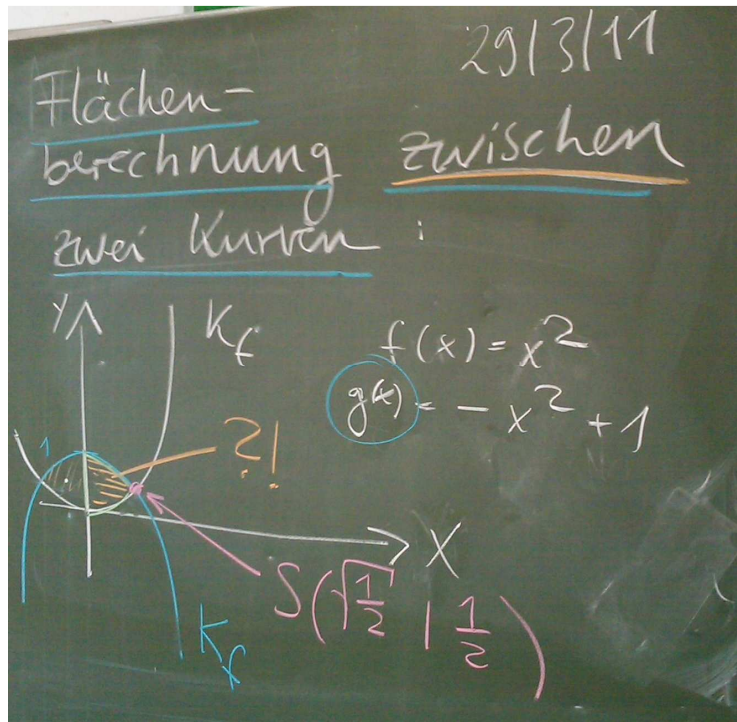 29/3/11
Flächen-
berechnung zwischen
zwei Kurven :
Y
K_f
f(x) = x²
g(x) = - x² + 1
1
?!
X
S(√1/2 | 1/2)
K_f